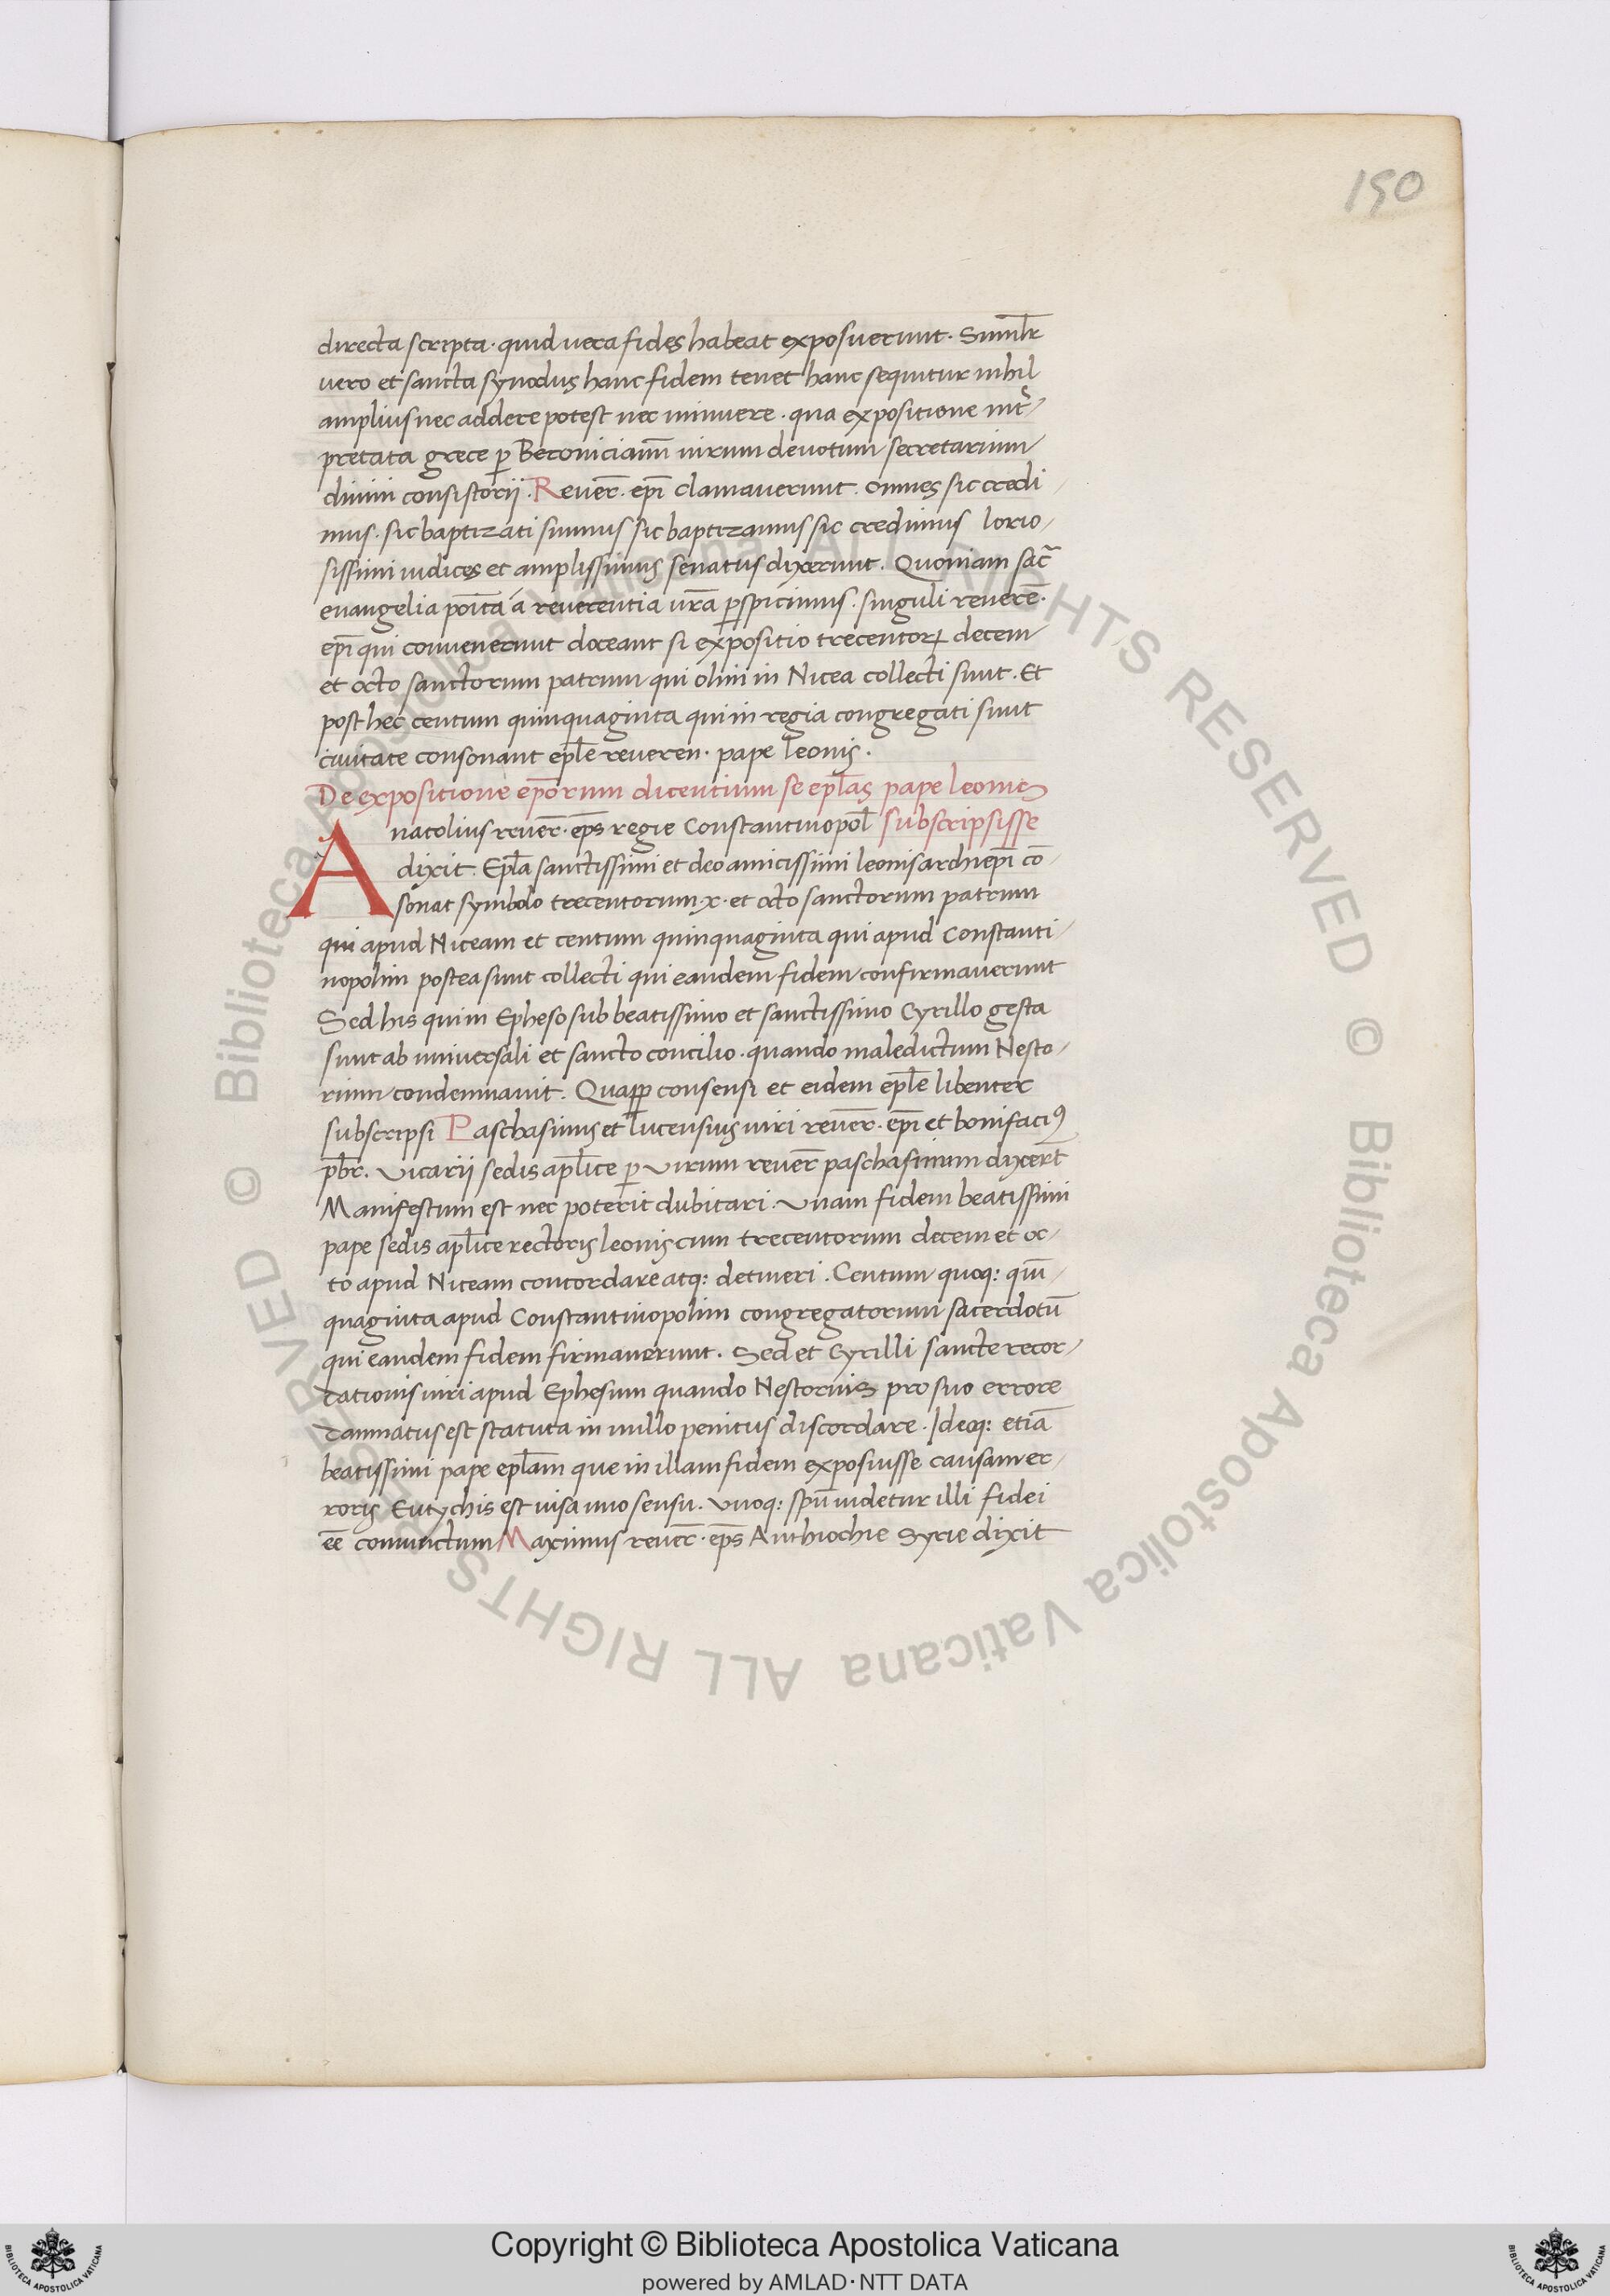 150
directa scripta · quid uera fides habeat exposuerunt · Simil̄r
uero et sancta synodus hanc fidem tenet hanc sequitur nihil
amplius nec addere potest nec minuere · qua expositione int̄
pretata grece p̲ Beroniciam̄ uirum deuotum secretarium
diuini consistorii · Reuer̄ · ep̄i clamauerunt · omnes sic credi
mus · sic baptizati sumus sic baptizamus sic credimus lorio
sissimi iudices et amplissimus senatus dixerunt · Quoniam sāc
euangelia poīta á reuerentia ur̄a p̲spicimus · singuli reuerē ·
ep̄i qui conuenerunt doceant si expositio trecentoꝝ decem
et octo sanctorum patrum qui olim in Nicea collecti sunt · Et
post hec centum quinquaginta qui in regia congregati sunt
ciuitate consonant ep̄le reueren · pape leonis ·
De expositione ep̄orum dicentium se ep̄las pape leonis
Anatolius reuer̄ · ep̄s regie Constantinopol̄ subscripsisse
dixit · Ep̄la sanctissimi et deo amicissimi leonis archiep̄i cō
sonat symbolo trecentorum · x · et octo sanctorum patrum
qui apud Niceam et centum quinquaginta qui apud Constanti
nopolim postea sunt collecti qui eandem fidem confirmauerunt
Sed his qui in Epheso sub beatissimo et sanctissimo Cyrillo gesta
sunt ab uniuersali et sancto concilio · quando maledictum Nesto
rium condemnauit · Quapp̲ consensi et eidem ep̄le libenter
subscripsi Paschasinus et lucensius uiri reuer̄ · ep̄i et bonifaciꝰ
p̄br · Vicarii sedis ap̄lice p̲ uirum reuer̄ paschasinum dixer̄t
Manifestum est nec poterit dubitari · Vnam fidem beatissimi
pape sedis ap̄lice rectoris leonis cum trecentorum decem et oc
to apud Niceam concordare atq: detineri · Centum quoq: quī
quaginta apud Constantinopolim congregatorum sacerdotū
qui eandem fidem firmauerunt · Sed et Cyrilli sancte recor
dationis uiri apud Ephesum quando Nestorius pro suo errore
damnatus est statuta in nullo penitus discordare · Ideoq: etiā
beatissimi pape ep̄lam que in illam fidem exposiusse causam er
roris Eutychis est uisa uno sensu · Vnoq: sp̄u uidetur illi fidei
ēē coniunctum Maximus reuer̄ · ep̄s Anthiochie Syrie dixit
© Biblioteca Apostolica Vaticana ALL RIGHTS RESERVED © Biblioteca Apostolica Vaticana ALL RIGHTS RESERVED
Copyright © Biblioteca Apostolica Vaticana
powered by AMLAD·NTT DATA
BIBLIOTECA APOSTOLICA VATICANA
BIBLIOTECA APOSTOLICA VATICANA